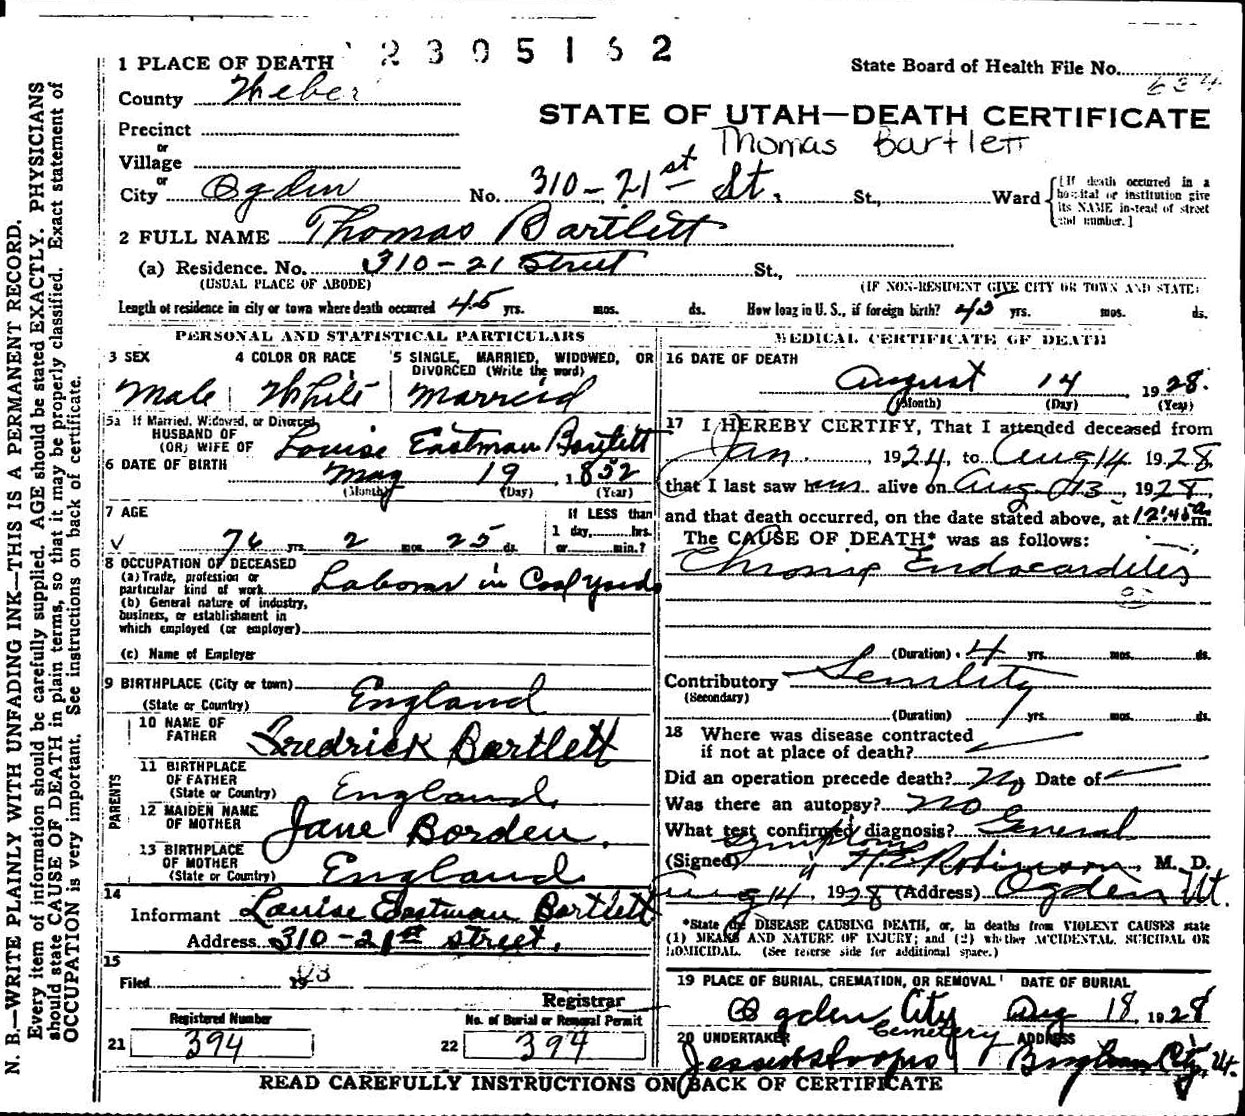 2305162
1 PLACE OF DEATH
State Board of Health File No. 634
County Weber
STATE OF UTAH—DEATH CERTIFICATE
Precinct
Thomas Bartlett
or
Village
or
City Ogden No. 310-21st St. St., Ward
[If death occurred in a hospital or institution give its NAME instead of street and number.]
2 FULL NAME Thomas Bartlett
(a) Residence. No. 310-21 Street St.,
(USUAL PLACE OF ABODE) (IF NON-RESIDENT GIVE CITY OR TOWN AND STATE)
Length of residence in city or town where death occurred 45 yrs. mos. ds. How long in U. S., if foreign birth? 45 yrs. mos. ds.
PERSONAL AND STATISTICAL PARTICULARS
3 SEX 4 COLOR OR RACE 5 SINGLE, MARRIED, WIDOWED, OR DIVORCED (Write the word)
Male White Married
5a If Married, Widowed, or Divorced
HUSBAND OF
(OR) WIFE OF Louise Eastman Bartlett
6 DATE OF BIRTH May 19, 1852
(Month) (Day) (Year)
7 AGE If LESS than
1 day, hrs.
76 yrs. 2 mos. 25 ds. or min.?
8 OCCUPATION OF DECEASED
(a) Trade, profession or
particular kind of work Laborer in Coal yards
(b) General nature of industry,
business, or establishment in
which employed (or employer)
(c) Name of Employer
9 BIRTHPLACE (City or town)
(State or Country) England
PARENTS
10 NAME OF
FATHER Fredrick Bartlett
11 BIRTHPLACE
OF FATHER
(State or Country) England
12 MAIDEN NAME
OF MOTHER Jane Borden.
13 BIRTHPLACE
OF MOTHER
(State or Country) England
14
Informant Louise Eastman Bartlett
Address 310-21st street.
15
Filed 19
Registrar
Registered Number No. of Burial or Removal Permit
21 394 22 394
MEDICAL CERTIFICATE OF DEATH
16 DATE OF DEATH
August 14 1928.
(Month) (Day) (Year)
17 I HEREBY CERTIFY, That I attended deceased from
Jan. 1924, to Aug 14 1928,
that I last saw him alive on Aug 13, 1928,
and that death occurred, on the date stated above, at 12:45 a m.
The CAUSE OF DEATH* was as follows:
Chronic Endocarditis
(Duration) 4 yrs. mos. ds.
Contributory Senility
(Secondary)
(Duration) 1 yrs. mos. ds.
18 Where was disease contracted
if not at place of death?
Did an operation precede death? No Date of
Was there an autopsy? No
What test confirmed diagnosis? General
Symptoms
(Signed) H E Robinson, M. D.
Aug 14, 1928 (Address) Ogden Ut.
*State the DISEASE CAUSING DEATH, or, in deaths from VIOLENT CAUSES state
(1) MEANS AND NATURE OF INJURY; and (2) whether ACCIDENTAL, SUICIDAL OR
HOMICIDAL. (See reverse side for additional space.)
19 PLACE OF BURIAL, CREMATION, OR REMOVAL DATE OF BURIAL
Ogden City Cemetery Aug 18, 1928
20 UNDERTAKER ADDRESS
Brigham City, Ut.
READ CAREFULLY INSTRUCTIONS ON BACK OF CERTIFICATE
N. B.—WRITE PLAINLY WITH UNFADING INK—THIS IS A PERMANENT RECORD.
Every item of information should be carefully supplied. AGE should be stated EXACTLY. PHYSICIANS
should state CAUSE OF DEATH in plain terms, so that it may be properly classified. Exact statement of
OCCUPATION is very important. See instructions on back of certificate.